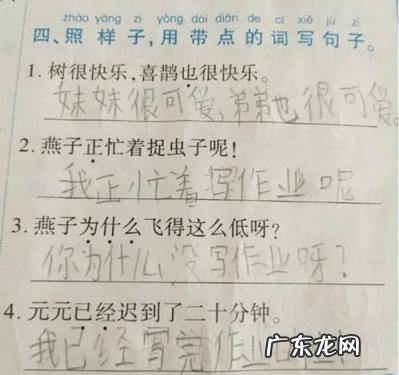 zhào yàng zi yòng dài diǎn de cí xiě jù zi
四、照样子,用带点的词写句子。
1. 树很快乐,喜鹊也很快乐。
妹妹很可爱,弟弟也很可爱。
2. 燕子正忙着捉虫子呢!
我正忙着写作业呢
3. 燕子为什么飞得这么低呀?
你为什么没写作业呀?
4. 元元已经迟到了二十分钟。
我已经写完作业
广东龙网